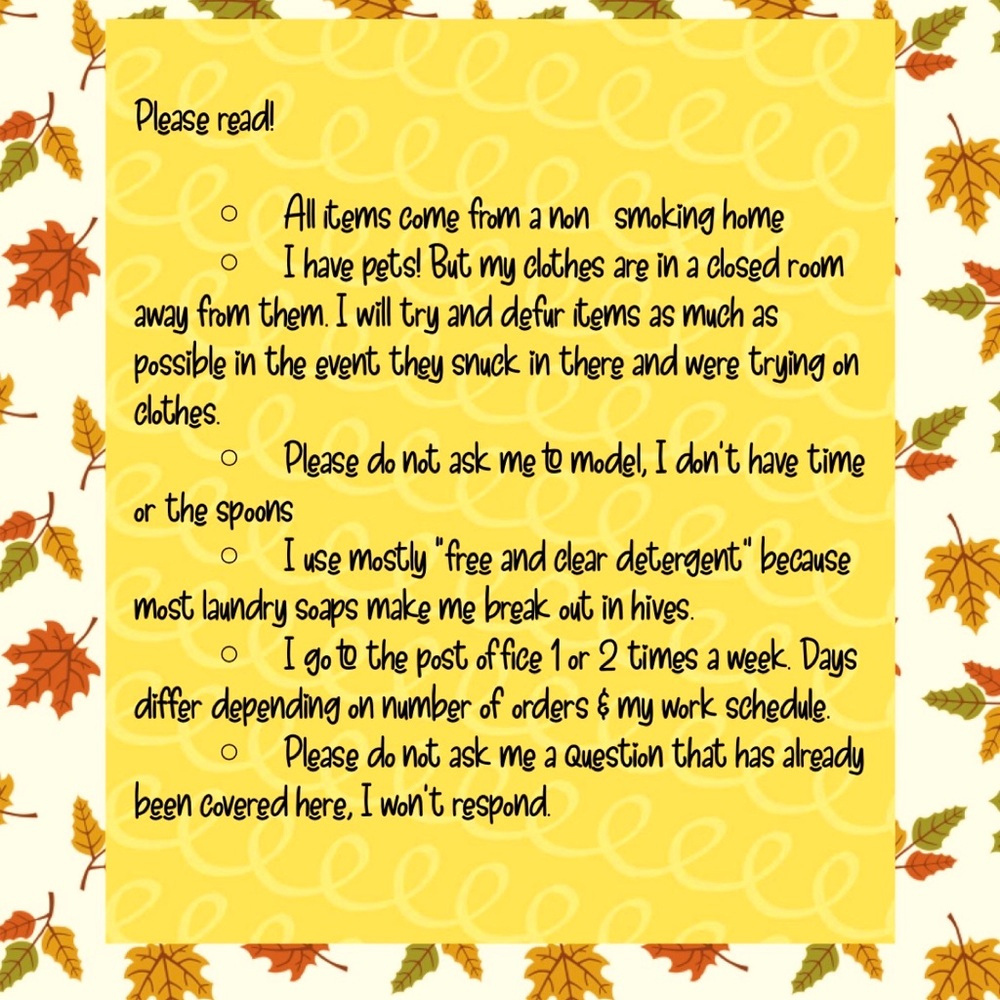 Please read!
○ All items come from a non smoking home
○ I have pets! But my clothes are in a closed room
away from them. I will try and defur items as much as
possible in the event they snuck in there and were trying on
clothes.
○ Please do not ask me to model, I don't have time
or the spoons
○ I use mostly "free and clear detergent" because
most laundry soaps make me break out in hives.
○ I go to the post office 1 or 2 times a week. Days
differ depending on number of orders & my work schedule.
○ Please do not ask me a question that has already
been covered here, I won't respond.